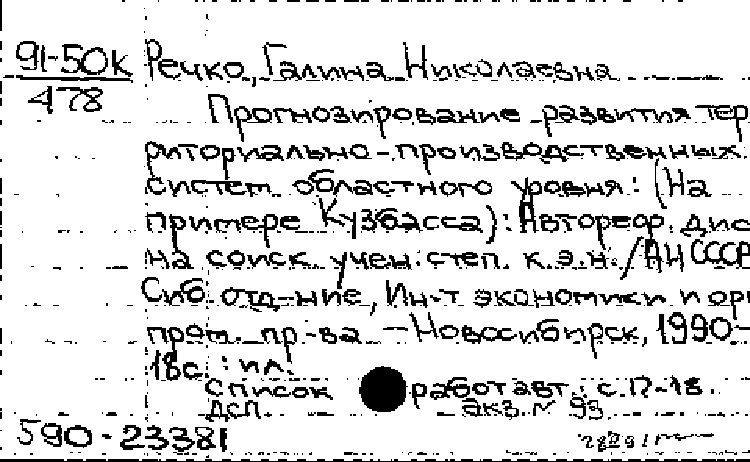 91-50к Речко, Галина Николаевна
478
Прогнозирование развития тер
риториально-производственных
систем областного уровня: (На
примере Кузбасса): Автореф. дис
на соиск. учен. степ. к.э.н. / АН СССР
Сиб. отд-ние, Ин-т экономики и орг
пром. пр-ва. – Новосибирск, 1990-
18с. : ил.
Список работ авт.: с. 17-18.
ДСП. экз. N 93
590-23381